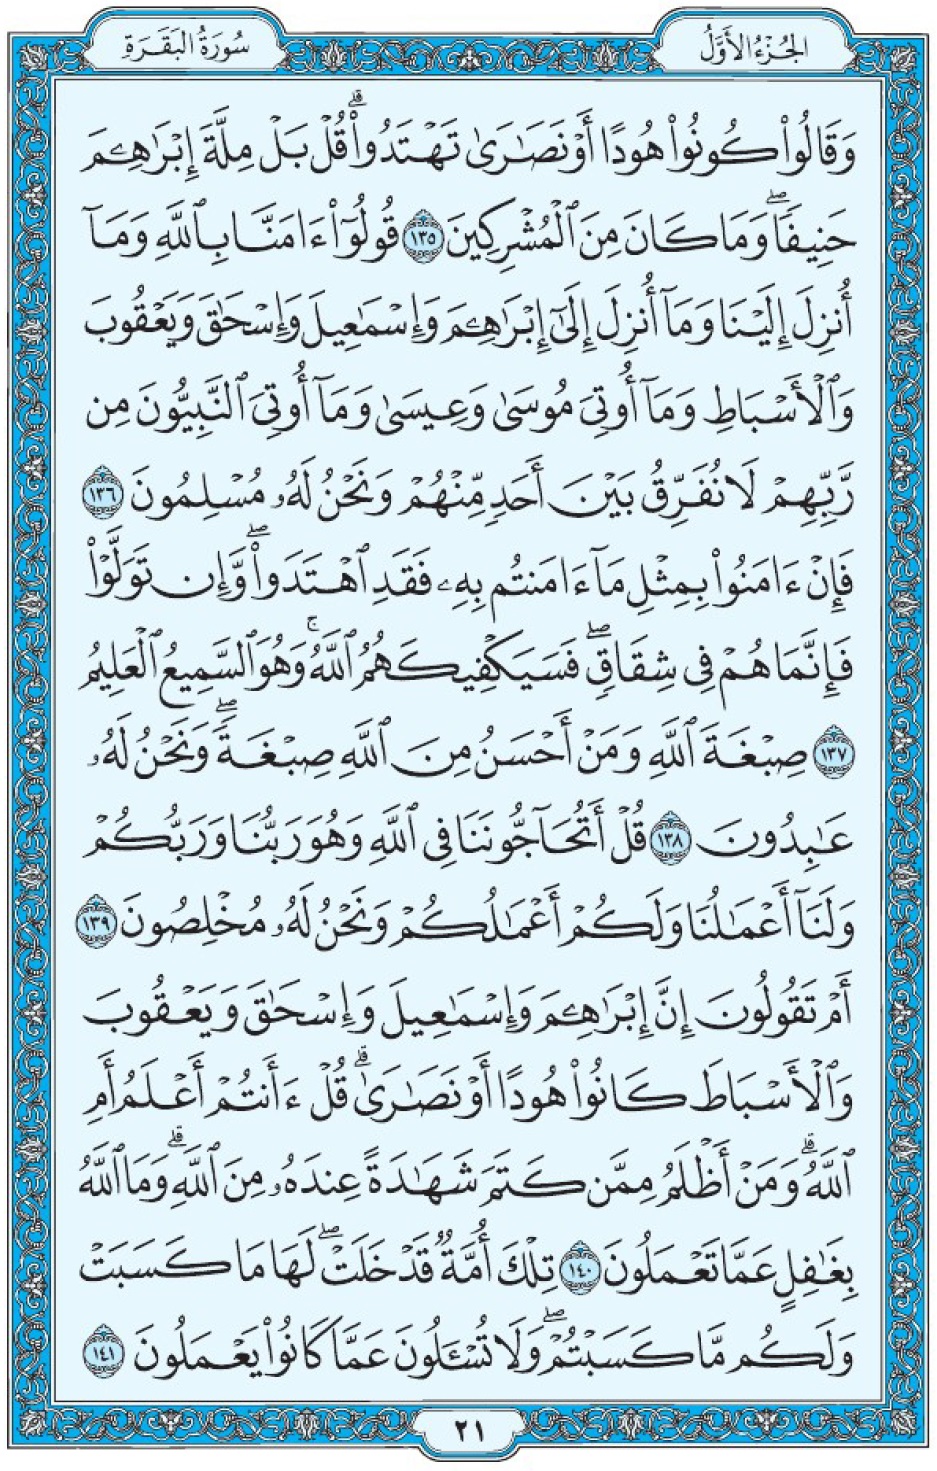 الجُزْءُ الأَوَّلُ
سُورَةُ البَقَرَةِ
وَقَالُوا۟ كُونُوا۟ هُودًا أَوْ نَصَـٰرَىٰ تَهْتَدُوا۟ۗ قُلْ بَلْ مِلَّةَ إِبْرَٰهِـۧمَ
حَنِيفًاۖ وَمَا كَانَ مِنَ ٱلْمُشْرِكِينَ ١٣٥ قُولُوٓا۟ ءَامَنَّا بِٱللَّهِ وَمَآ
أُنزِلَ إِلَيْنَا وَمَآ أُنزِلَ إِلَىٰٓ إِبْرَٰهِـۧمَ وَإِسْمَـٰعِيلَ وَإِسْحَـٰقَ وَيَعْقُوبَ
وَٱلْأَسْبَاطِ وَمَآ أُوتِىَ مُوسَىٰ وَعِيسَىٰ وَمَآ أُوتِىَ ٱلنَّبِيُّونَ مِن
رَّبِّهِمْ لَا نُفَرِّقُ بَيْنَ أَحَدٍ مِّنْهُمْ وَنَحْنُ لَهُۥ مُسْلِمُونَ ١٣٦
فَإِنْ ءَامَنُوا۟ بِمِثْلِ مَآ ءَامَنتُم بِهِۦ فَقَدِ ٱهْتَدَوا۟ۖ وَّإِن تَوَلَّوْا۟
فَإِنَّمَا هُمْ فِى شِقَاقٍۖ فَسَيَكْفِيكَهُمُ ٱللَّهُۚ وَهُوَ ٱلسَّمِيعُ ٱلْعَلِيمُ
١٣٧ صِبْغَةَ ٱللَّهِ وَمَنْ أَحْسَنُ مِنَ ٱللَّهِ صِبْغَةًۖ وَنَحْنُ لَهُۥ
عَـٰبِدُونَ ١٣٨ قُلْ أَتُحَآجُّونَنَا فِى ٱللَّهِ وَهُوَ رَبُّنَا وَرَبُّكُمْ
وَلَنَآ أَعْمَـٰلُنَا وَلَكُمْ أَعْمَـٰلُكُمْ وَنَحْنُ لَهُۥ مُخْلِصُونَ ١٣٩
أَمْ تَقُولُونَ إِنَّ إِبْرَٰهِـۧمَ وَإِسْمَـٰعِيلَ وَإِسْحَـٰقَ وَيَعْقُوبَ
وَٱلْأَسْبَاطَ كَانُوا۟ هُودًا أَوْ نَصَـٰرَىٰۗ قُلْ ءَأَنتُمْ أَعْلَمُ أَمِ
ٱللَّهُۗ وَمَنْ أَظْلَمُ مِمَّن كَتَمَ شَهَـٰدَةً عِندَهُۥ مِنَ ٱللَّهِۗ وَمَا ٱللَّهُ
بِغَـٰفِلٍ عَمَّا تَعْمَلُونَ ١٤٠ تِلْكَ أُمَّةٌ قَدْ خَلَتْۖ لَهَا مَا كَسَبَتْ
وَلَكُم مَّا كَسَبْتُمْۖ وَلَا تُسْـَٔلُونَ عَمَّا كَانُوا۟ يَعْمَلُونَ ١٤١
٢١